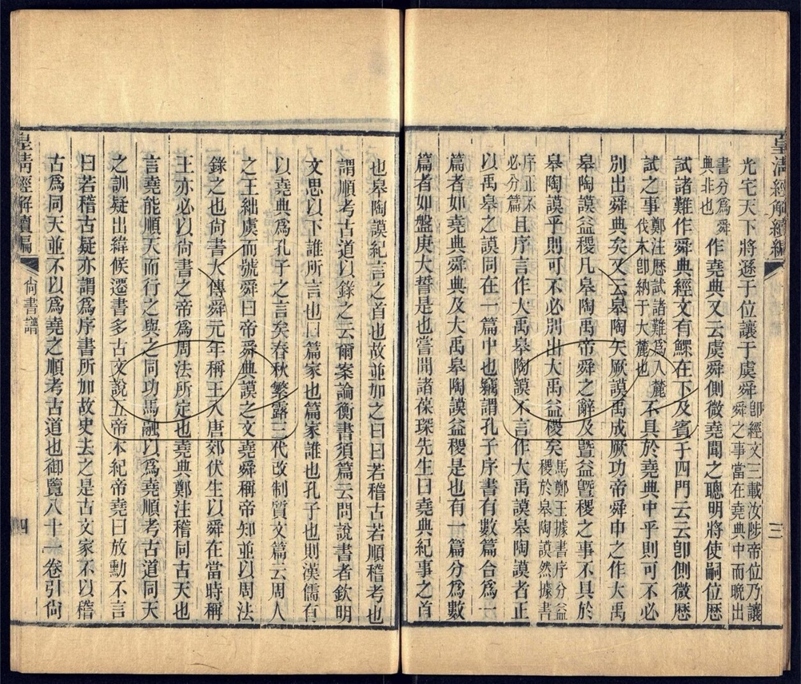 光宅天下將遜于位讓于虞舜卽經文三載汝陟帝位乃讓舜之事當在堯典中而晚出
書分爲舜典非也作堯典又云虞舜側微堯聞之聰明將使嗣位歷
試諸難作舜典經文有鰥在下及賓于四門云云卽側微歷
試之事鄭注歷試諸難爲入麓伐木卽納于大麓也不具於堯典中乎則可不必
別出舜典矣又云皋陶矢厥謨禹成厥功帝舜申之作大禹
皋陶謨益稷凡皋陶禹帝舜之辭及曁益曁稷之事不具於
皋陶謨乎則可不必別出大禹益稷矣馬鄭王據書序分益稷於皋陶謨然據書
序正不必分篇且序言作大禹皋陶謨不言作大禹謨皋陶謨者正
以禹皋之謨同在一篇中也竊謂孔子序書有數篇合爲一
篇者如堯典舜典及大禹皋陶謨益稷是也有一篇分爲數
篇者如盤庚大誓是也嘗聞諸葆琛先生曰堯典紀事之首
皇淸經解續編
三
也皋陶謨紀言之首也故並加之曰曰若稽古若順稽考也
謂順考古道以錄之云爾案論衡書須篇云問說書者欽明
文思以下誰所言也曰篇家也篇家誰也孔子也則漢儒有
以堯典爲孔子之言矣春秋繁露三代改制質文篇云周人
之王絀虞而號舜曰帝舜典謨之文堯舜稱帝知並以周法
錄之也尙書大傳舜元年稱王入唐郊伏生以舜在當時稱
王亦必以尙書之帝爲周法所定也堯典鄭注稽同古天也
言堯能順天而行之與之同功馬融以爲堯順考古道同天
之訓疑出緯候遷書多古文說五帝本紀帝堯曰放勳不言
曰若稽古疑亦謂爲序書所加故史去之是古文家不以稽
古爲同天並不以爲堯之順考古道也御覽八十一卷引尙
皇淸經解續編
尙書譜
四